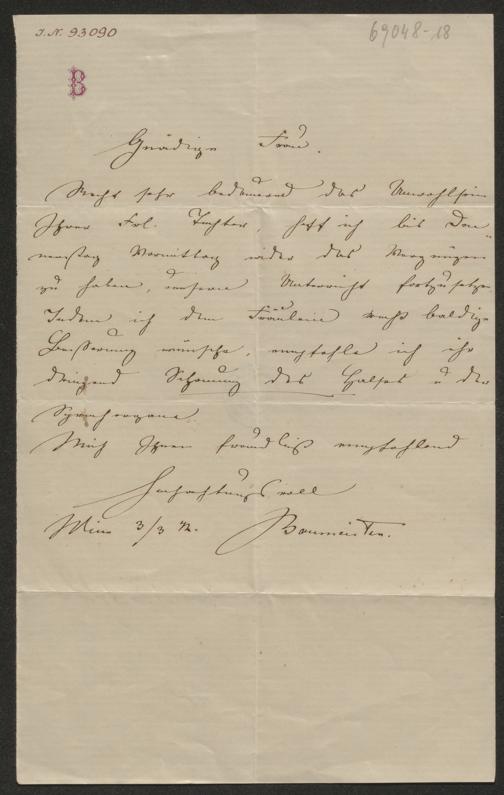 I. N. 93090
69048-18
B
Gnädige Frau.
Recht sehr bedauernd das Unwohlsein
Ihrer Frl. Tochter, hoff ich bis Don-
nerstag Vormittag wieder das Vergnügen
zu haben, unseren Unterricht fortzusetzen
Indem ich dem Fräulein recht baldige
Besserung wünsche, empfehle ich ihr
dringend Schonung des Halses u der
Sprachorgane
Mich Ihnen freundlichst empfehlend
Hochachtungsvoll
Wien 3/3 72. Baumeister.